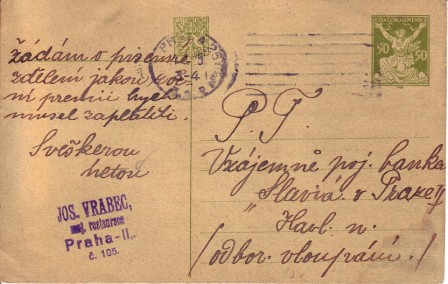 Žádám o písemné
zdělení jakou roč
ní premii bych
musel zaplatiti.
Sveškerou
úctou
JOS. VRABEC,
maj. restaurace
Praha-II.,
č. 105.
50
50
P. T.
Vzájemně poj. banka
"Slavia" v Praze II
Havl. n.
/odbor. vloupání./